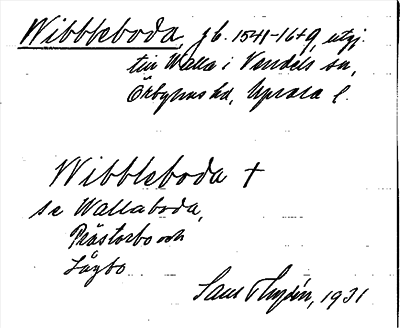 Wibbleboda, jb. 1541-1649, utgj.
till Walla i Vendels sn,
Örbyhus hd, Uppsala l.
Wibbleboda †
se Wallaboda,
Prästorbo och
Lågbo
Sam Thyrén, 1931